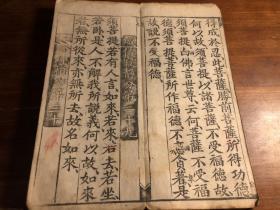 得成於忍此菩薩勝前菩薩所得功德
何以故須菩提以諸菩薩不受福德故
須菩提白佛言世尊云何菩薩不受福
德須菩提菩薩所作福德不應貪著是
故說不受福德
威儀寂靜分第二十九
須菩提若有人言如來若來若去若坐
若臥是人不解我所說義何以故如來
者無所從來亦無所去故名如來